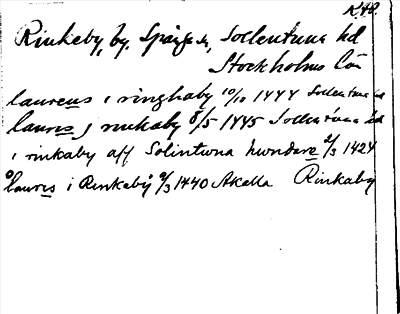 Rinkeby, by, Spånga sn, Sollentuna hd
Stockholms län
laurens i ringhaby 10/10 1444 Sollentuna hd
laurens j rinkaby 8/5 1445 Sollentuna hd
i rinkaby aff Solintwna hundare 2/3 1424
laurens i Rinkaby 9/3 1440 Akalla Rinkaby